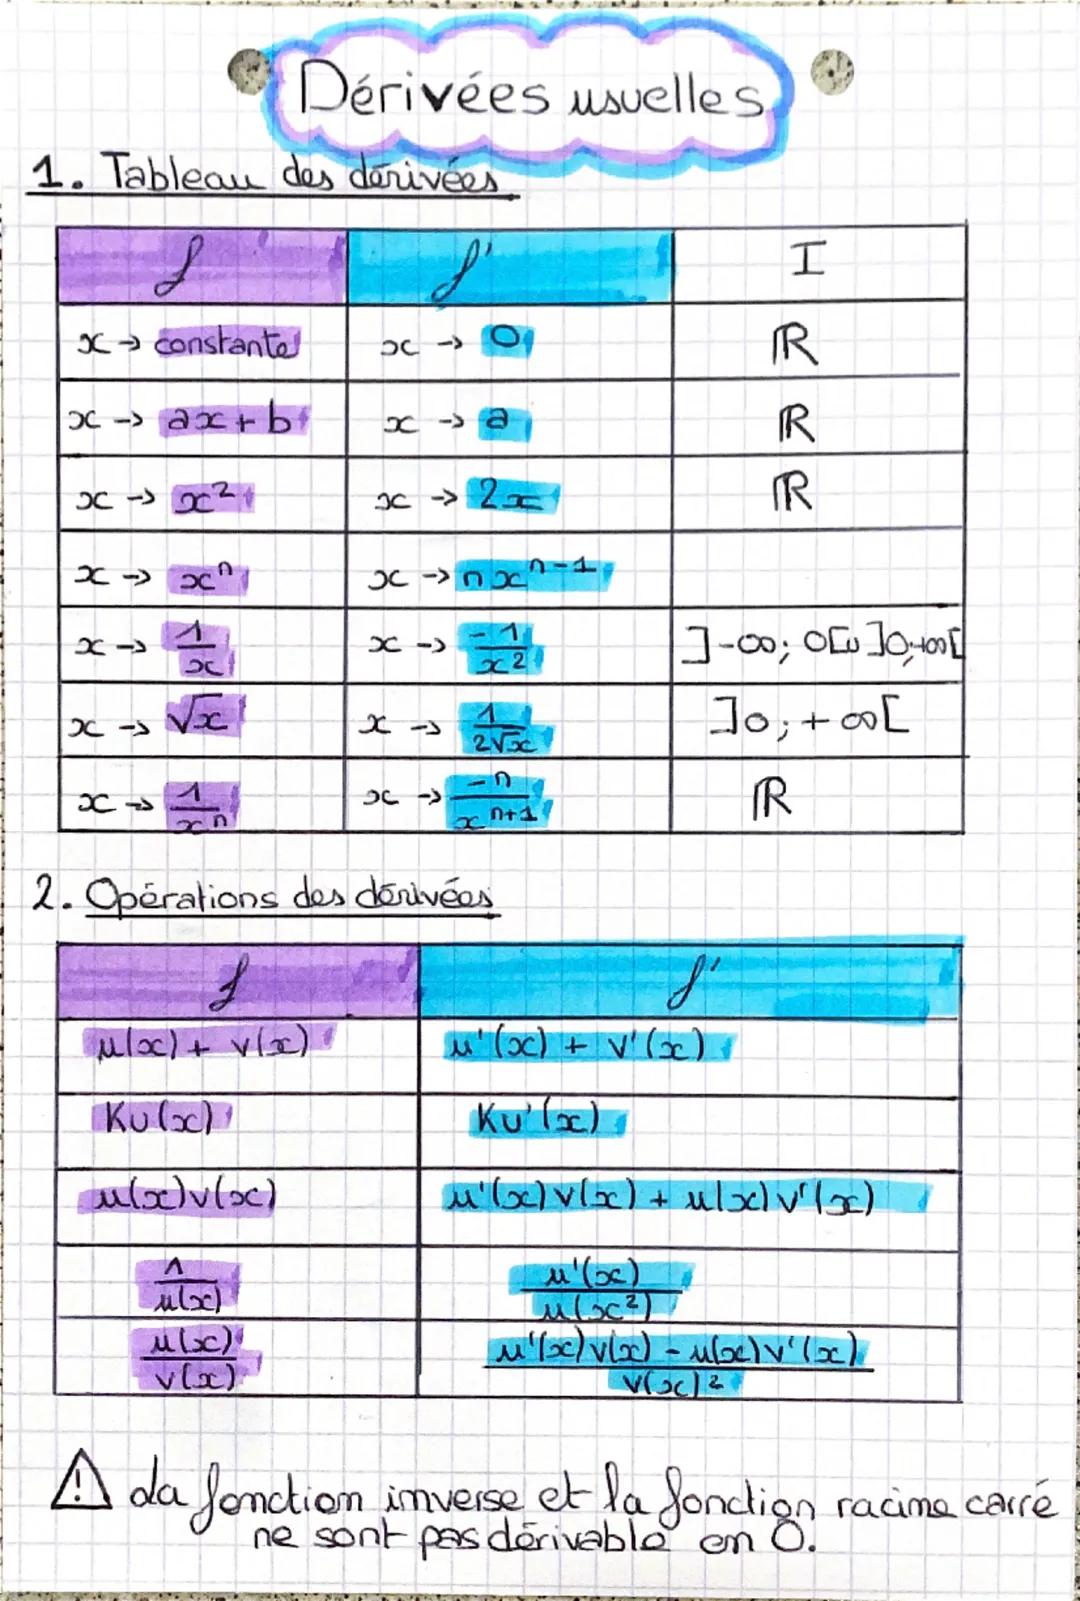 Dérivées usuelles
1. Tableau des dérivées
f f' I
x → constante x → 0 ℝ
x → ax + b x → a ℝ
x → x² x → 2x ℝ
x → xⁿ x → nxⁿ⁻¹
x → 1/x x → -1/x² ]-∞; 0[∪]0;+∞[
x → √x x → 1/2√x ]0; +∞[
x → 1/xⁿ x → -n/xⁿ⁺¹ ℝ
2. Opérations des dérivées
f f'
u(x) + v(x) u'(x) + v'(x)
Ku(x) Ku'(x)
u(x)v(x) u'(x)v(x) + u(x)v'(x)
1/u(x) u'(x)/u(x²)
u(x)/v(x) u'(x)v(x) - u(x)v'(x)/v(x)²
⚠ La fonction inverse et la fonction racine carré
ne sont pas dérivable en 0.